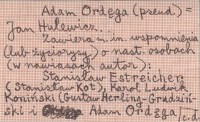 Adam Ordęga (pseud) =
Jan Hulewicz.
Zawiera m. in. wspomnienia
(lub życiorysy) o nast. osobach
(w nawiasach autor):
Stanisław Estreicher
(Stanisław Kot), Karol Ludwik
Koniński (Gustaw Herling-Grudziń-
ski i Adam Ordęga)
c.d.